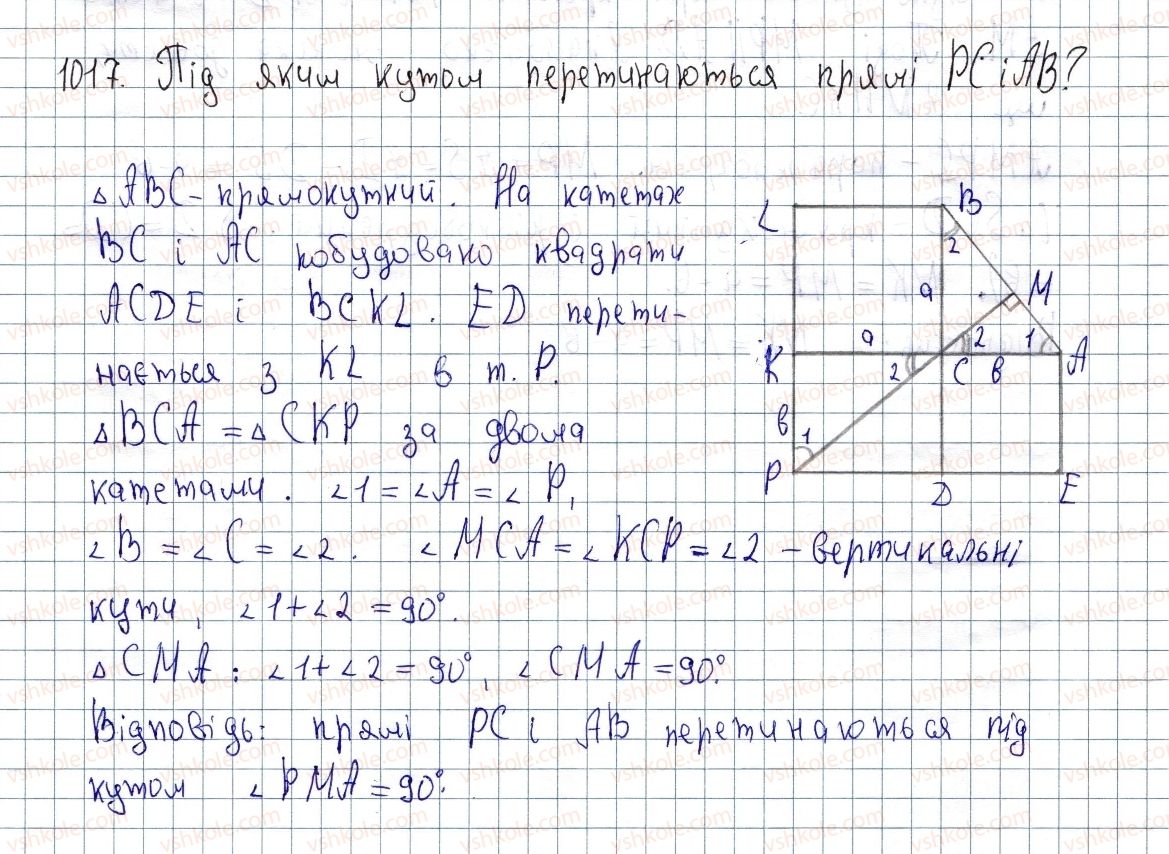 1017. Під яким кутом перетинаються прямі PC і AB?
△ABC - прямокутний. На катетах
BC і AC побудовано квадрати
ACDE і BCKL. ED перети-
нається з KL в т. P.
△BCA = △CKP за двома
катетами. ∠1 = ∠A = ∠P,
∠B = ∠C = ∠2. ∠MCA = ∠KCP = ∠2 - вертикальні
кути, ∠1 + ∠2 = 90°.
△CMA: ∠1 + ∠2 = 90°, ∠CMA = 90°.
Відповідь: прямі PC і AB перетинаються під
кутом ∠PMA = 90°.
L B
2
a M
a 2 1
K 2 C в A
в 1
P D E
vshkole.com